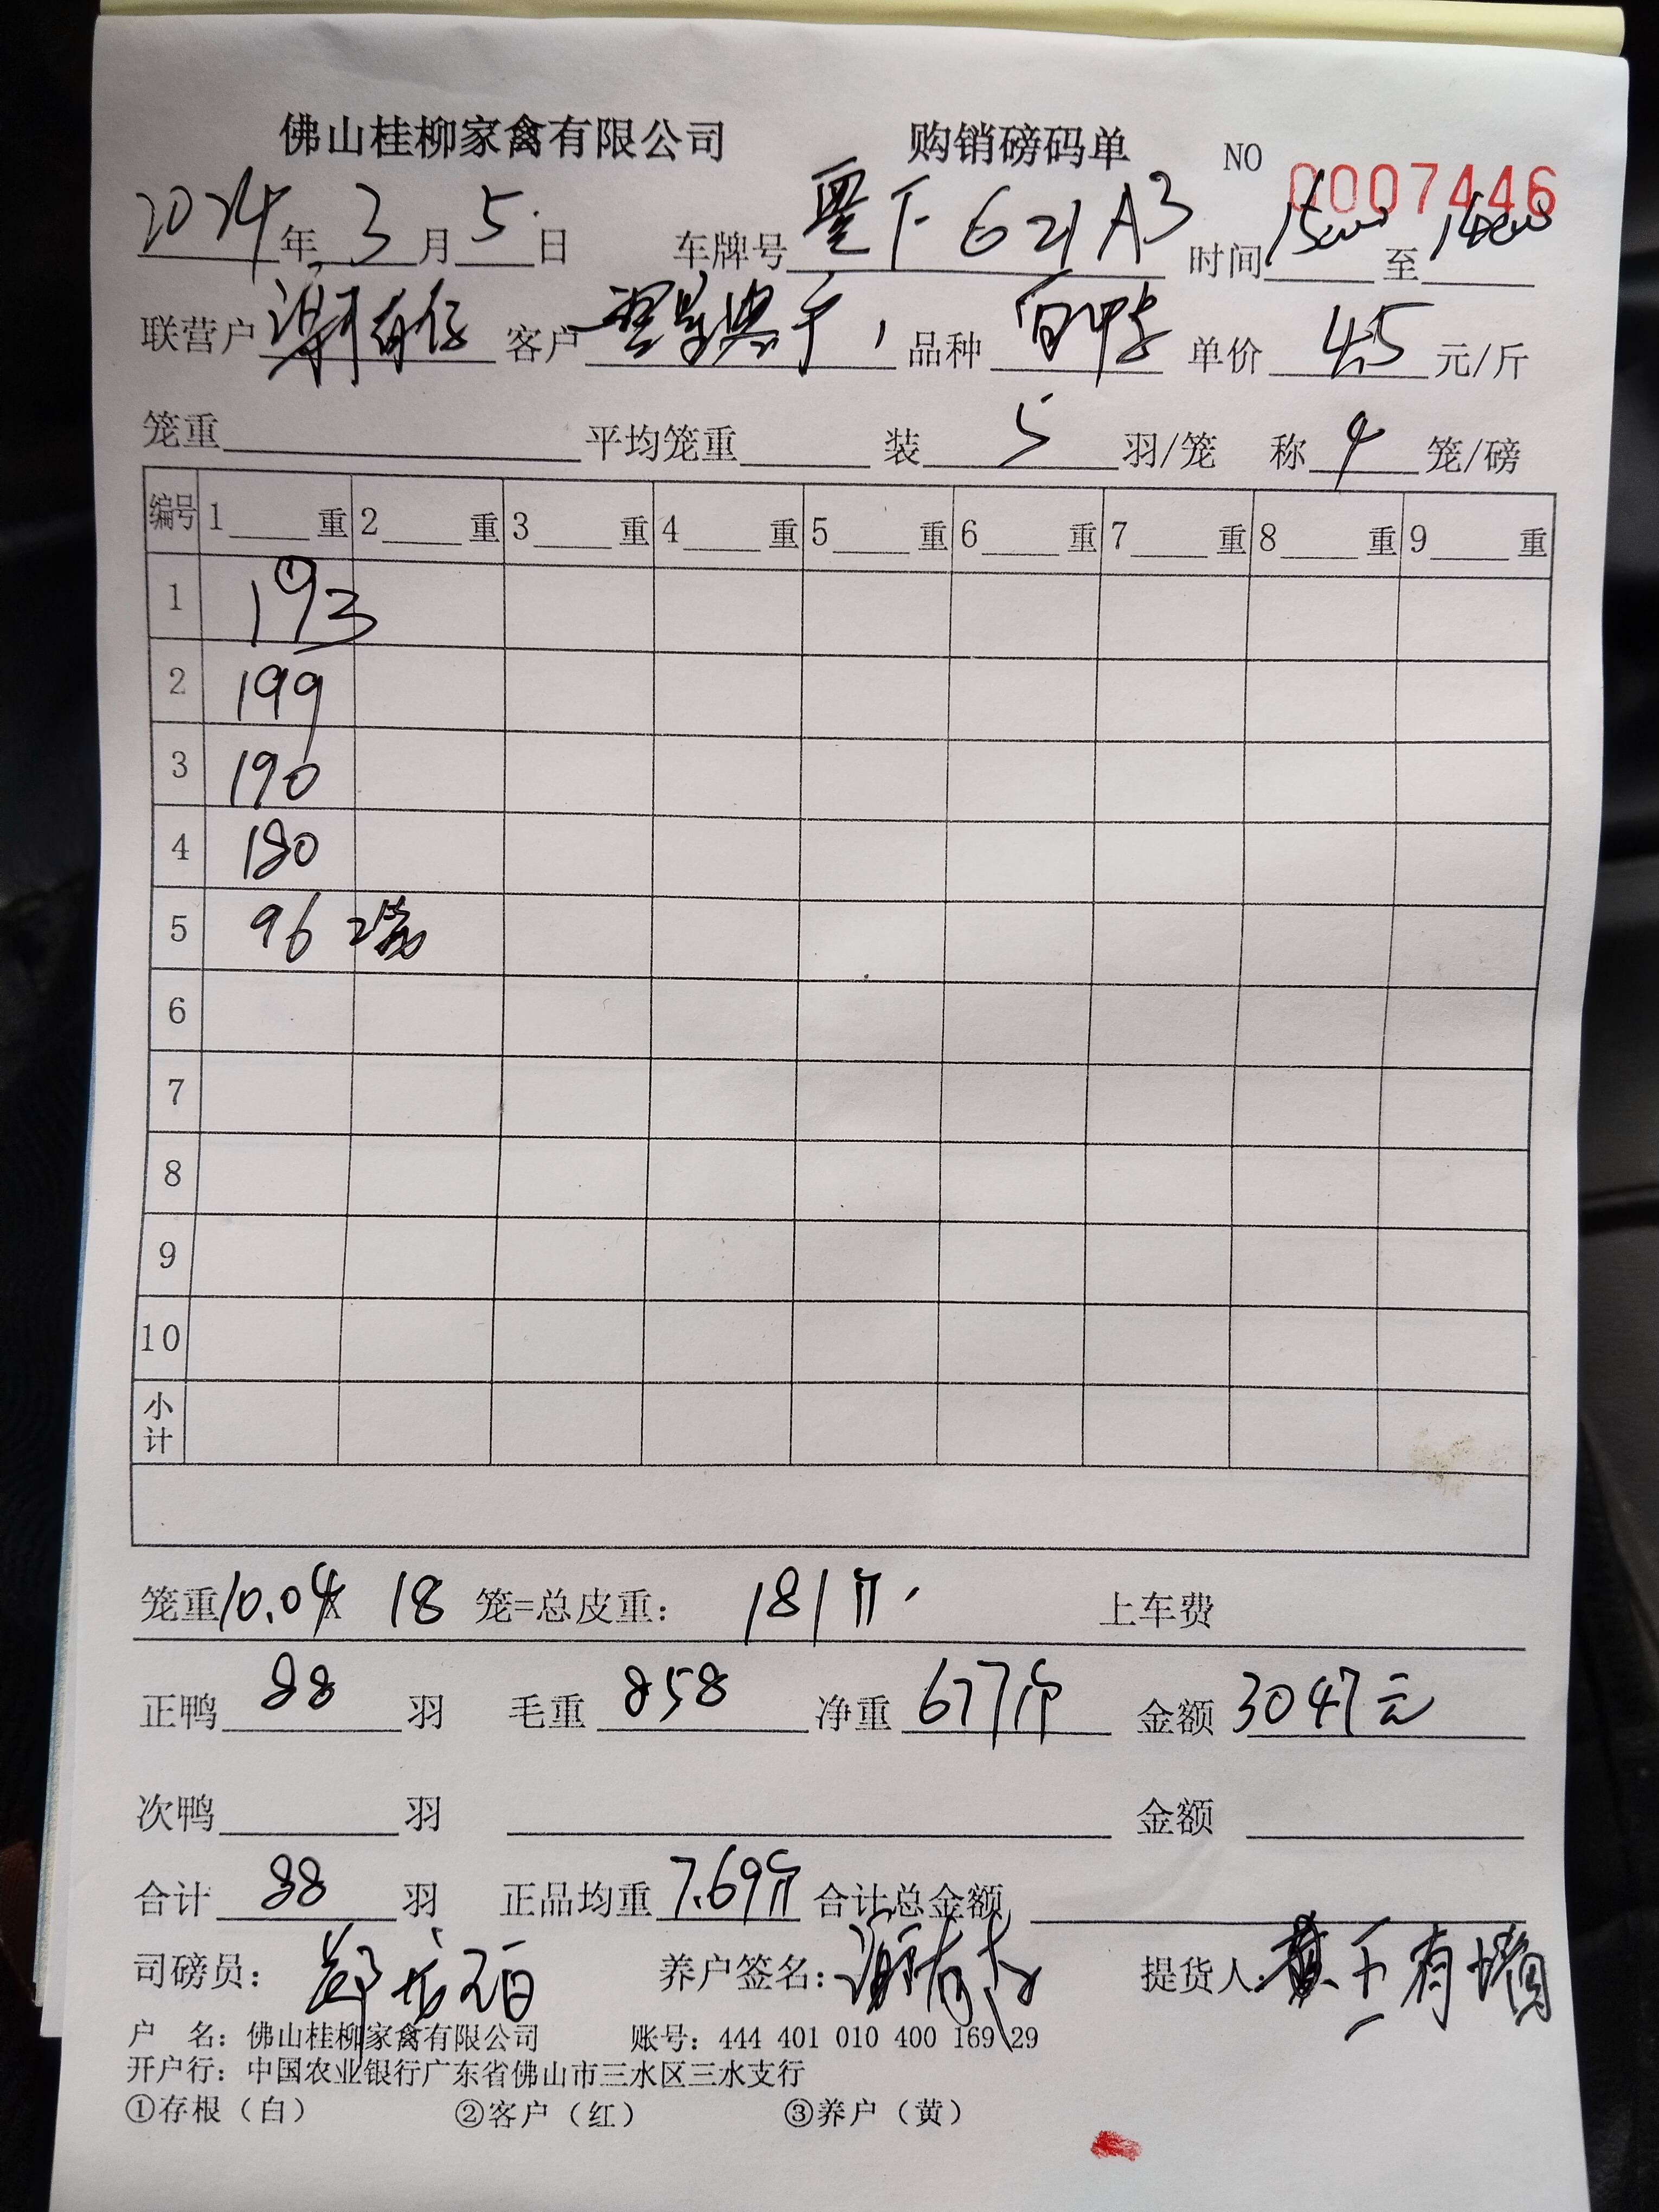 佛山桂柳家禽有限公司 购销磅码单 NO 0007446
2024年3月5日 车牌号 621A3 时间 至
联营户 谢有仔 客户 品种 白鸭 单价 4.5 元/斤
笼重 平均笼重 装 5 羽/笼 称 4 笼/磅
编号 1 重 2 重 3 重 4 重 5 重 6 重 7 重 8 重 9 重
1 193
2 199
3 190
4 180
5 96 2笼
6
7
8
9
10
小计
笼重 10.04 × 18 笼=总皮重: 181斤 上车费
正鸭 88 羽 毛重 858 净重 677斤 金额 3047元
次鸭 羽 金额
合计 88 羽 正品均重 7.69斤 合计总金额
司磅员: 养户签名: 提货人:
户 名: 佛山桂柳家禽有限公司 账号: 444 401 010 400 169 29
开户行: 中国农业银行广东省佛山市三水区三水支行
①存根（白） ②客户（红） ③养户（黄）